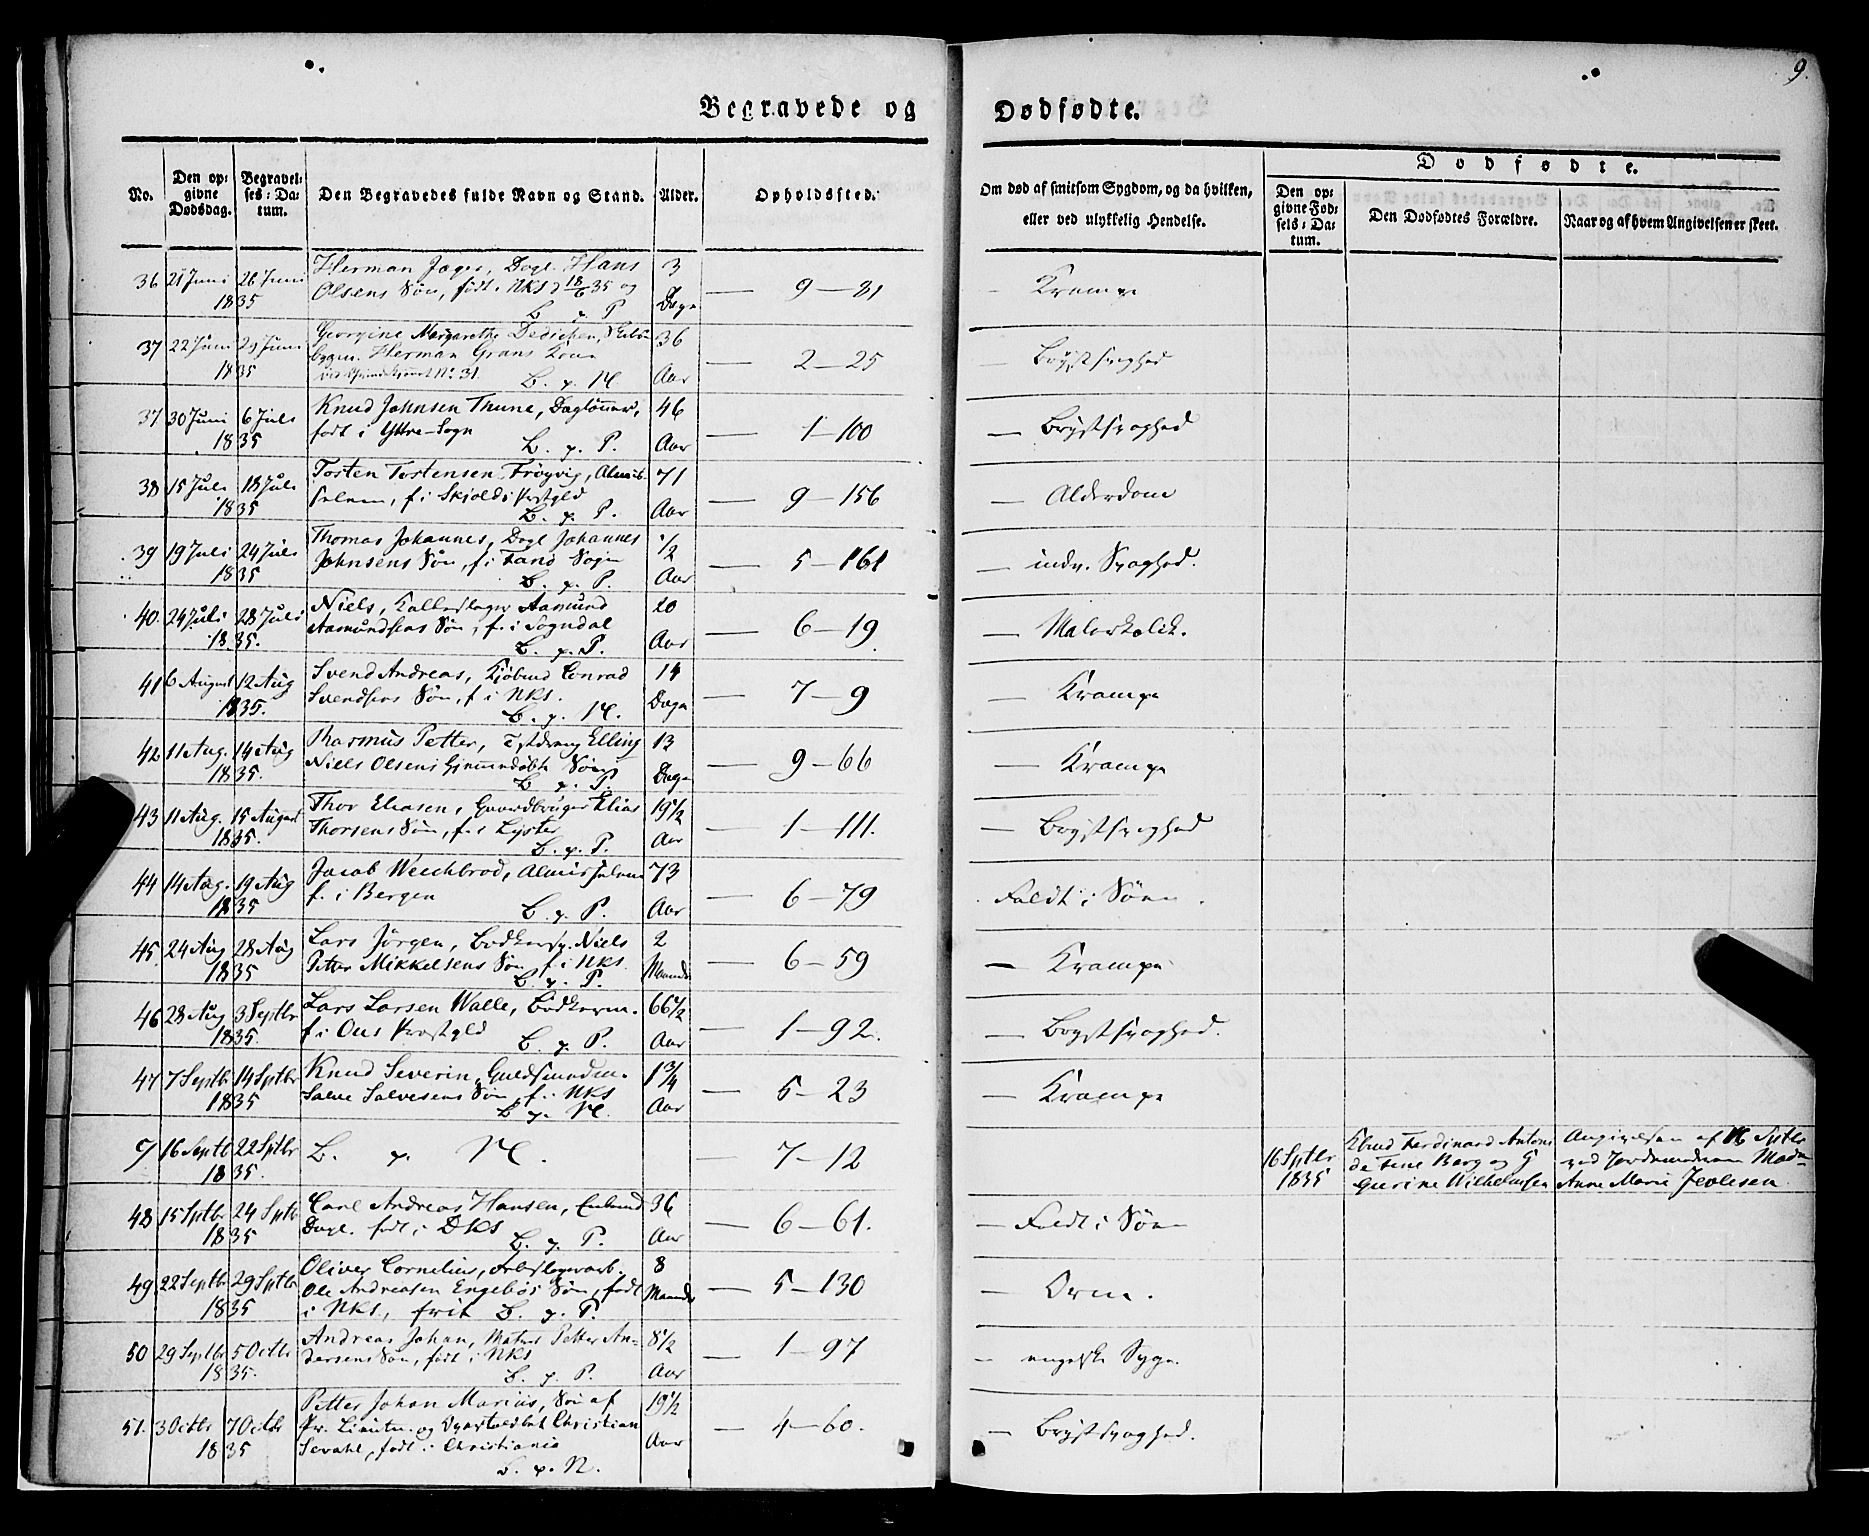 9.
Begravede og Dødfødte.
No.
Den opgivne Dødsdag.
Begravelses-Datum.
Den Begravedes fulde Navn og Stand.
Alder.
Opholdssted.
Om død af smitsom Sygdom, og da hvilken,
eller ved ulykkelig Hendelse.
Dødfødte.
Den opgivne Fødsels-Datum.
Den Dødfødtes Forældre.
Naar og af hvem Angivelsen er skeet.
36 21 Juni 26 Juni Herman Jager, Dagl. Hans 3
1835 Olsens Søn, født i NKS d 18/6 35 og Dage — 9–81 — Krampe
B. g. P.
37 22 Juni 29 Juni Georgine Margarethe Dedichen, 36
Herman Grans Kone
1835 No 31. B. g. N. Aar — 2–25 Brystsvaghed
37 30 Juni 6 Juli Knud Johnsen Thune, Daglønner, 46
født i Yttre-Sogn
1835 B. g. P. Aar — 1–100 — Brystsvaghed
38 15 Juli 18 Juli Tosten Tostensen Frøyvig, Almis- 71
selem, f. i Skjolds Prstgld
1835 B. g. P. Aar — 9–156 — Alderdom
39 19 Juli 24 Juli Thomas Johannes, Dagl Johannes 1/2
Johnsens Søn, f. i Fanø Sogn
1835 B. g. P. Aar — 5–161 — indv. Svaghed.
40. 24 Juli 28 Juli Niels, Aamund 20
Aamundsens Søn, f. i Sogndal
1835. B. g. P. Aar — 6–19. — Malerkolik.
41 6 August 12 Aug Svend Andreas, Kjøbmd Conrad 14
Svendsens Søn, f i NKS.
1835. B. g. N. Dage — 7–9 — Krampe
42 11 Aug. 14 Aug Rasmus Petter, Elling 13
Niels Olsens Søn
1835. B. g. P. Dage — 9–66 — Krampe
43 11 Aug. 15 August Thor Eliasen, Gaardbruger Elias 19 1/2
Thorsens Søn, f. i Lyster
1835. B. g. P. Aar — 1–111. — Brystsvaghed
44 14 Aug. 19 Aug Jacob Weichbrod, Almisselem 73
f. i Bergen
1835 B. g. P. Aar — 6–79 Faldt i Søen.
45 24 Aug 28 Aug Lars Jørgen, Bødkersv. Niels 2
Petter Mikkelsens Søn f. i NKS.
1835 B. g. P. Maaneder — 6–59 — Krampe
46 28 Aug 3 Septbr Lars Larsen Walle, Bødkerm. 66 1/2
f. i Ous Prestgld
1835. B. g. P. Aar — 1–92. — Brystsvaghed.
47 7 Septbr 14 Sptbr Knud Severin, Guldsmedm. 1 3/4
Salve Salvesens Søn, f. i NKS
1835 B. g. N. Aar — 5–23 — Krampe
9 16 Septb 22 Sptbr B. g. N. — 7–12
1835.
16 Sptbr 1835
Ferdinand Antoni
Berg og
Gurine Wilhelmsen
Angivelsen af 16 Sptbr
ved Jordemoderen Mad.
Anne Marie Jevlesen
48 15 Sptbr 24 Sptb Carl Andreas Hansen, 36
Dagl. født i DKS
1835 B. g. P. Aar — 6–61. — Faldt i Søen
49 22 Septbr 29 Sptbr Oliver Cornelius, 8
Ole Andreasen Engebøs Søn, født Maaneder
1835 i NKS, frit B. g. P. — 5–130 — Orm.
50 29 Septbr 5 Octbr Andreas Johan, Matros Petter An- 8 1/2
dersens Søn, født i NKS
1835. B. g. P. Aar — 1–97 — engelske Syge.
51. 3 Octbr 7 Octbr Petter Johan Marius, Søn af 19 1/2
Pr. Lieutn. og Christian
1835 Sevahl, født i Christiania Aar — 4–60. — Brystsvaghed.
B. g. N.